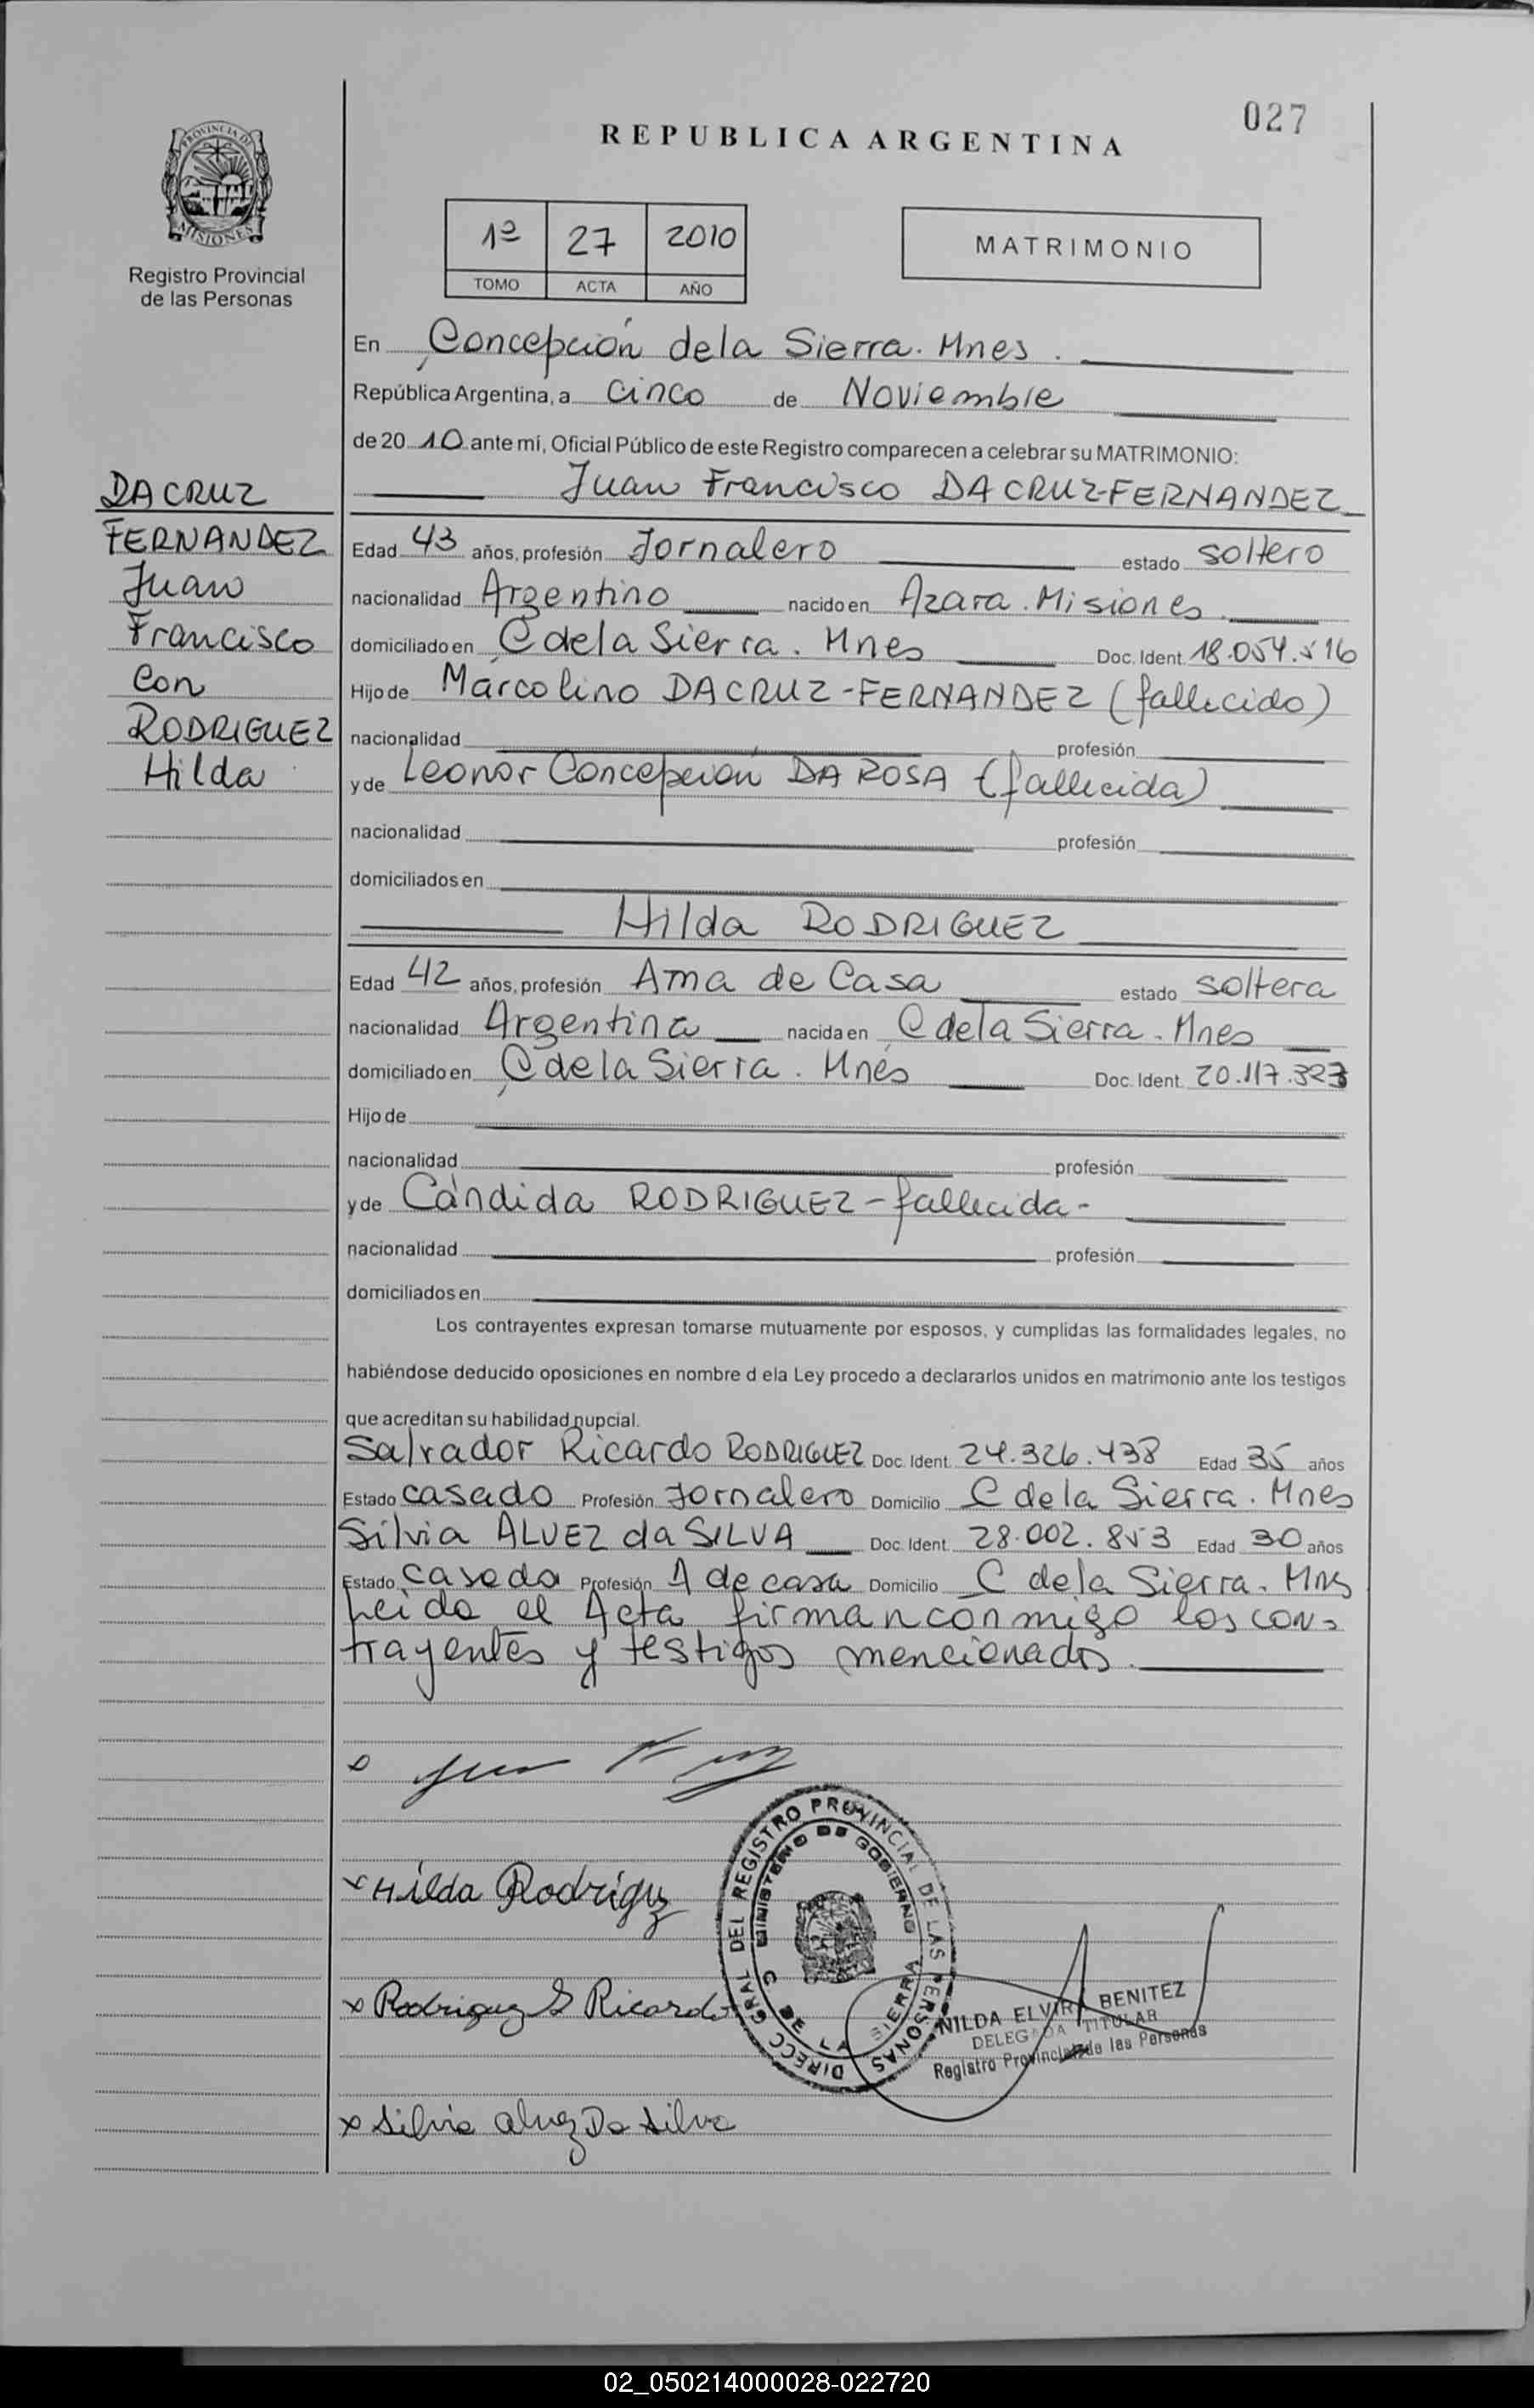 027
REPUBLICA ARGENTINA
PROVINCIA DE
MISIONES
Registro Provincial
de las Personas
1º 27 2010
TOMO ACTA AÑO
MATRIMONIO
En Concepción dela Sierra. Mnes.
República Argentina, a Cinco de Noviembre
de 20 10 ante mí, Oficial Público de este Registro comparecen a celebrar su MATRIMONIO:
Juan Francisco DA CRUZ-FERNANDEZ
DA CRUZ
FERNANDEZ
Juan
Francisco
Con
RODRIGUEZ
Hilda
Edad 43 años, profesión Jornalero estado soltero
nacionalidad Argentino nacido en Azara. Misiones
domiciliado en C dela Sierra. Mnes Doc. Ident. 18.054.516
Hijo de Marcolino DA CRUZ-FERNANDEZ (fallecido)
nacionalidad profesión
y de Leonor Concepción DA ROSA (fallecida)
nacionalidad profesión
domiciliados en
Hilda RODRIGUEZ
Edad 42 años, profesión Ama de Casa estado soltera
nacionalidad Argentina nacida en C dela Sierra. Mnes
domiciliado en C dela Sierra. Mnes Doc. Ident. 20.117.323
Hijo de
nacionalidad profesión
y de Cándida RODRIGUEZ-fallecida-
nacionalidad profesión
domiciliados en
Los contrayentes expresan tomarse mutuamente por esposos, y cumplidas las formalidades legales, no
habiéndose deducido oposiciones en nombre d ela Ley procedo a declararlos unidos en matrimonio ante los testigos
que acreditan su habilidad nupcial.
Salvador Ricardo RODRIGUEZ Doc. Ident. 24.326.438 Edad 35 años
Estado casado Profesión Jornalero Domicilio C dela Sierra. Mnes
Silvia ALVEZ da SILVA Doc. Ident. 28.002.853 Edad 30 años
Estado casada Profesión A de casa Domicilio C dela Sierra. Mns
Leida el Acta firman conmigo los con-
trayentes y testigos mencionados.
x Hilda Rodriguz
x Rodriguez S Ricardo
DIRECC GRAL DEL REGISTRO PROVINCIAL DE LAS PERSONAS
MINISTERIO DE GOBIERNO
C. DE LA SIERRA
NILDA ELVIRA BENITEZ
DELEGADA TITULAR
Registro Provincial de las Personas
x Silvia alvez Da Silva
02_050214000028-022720